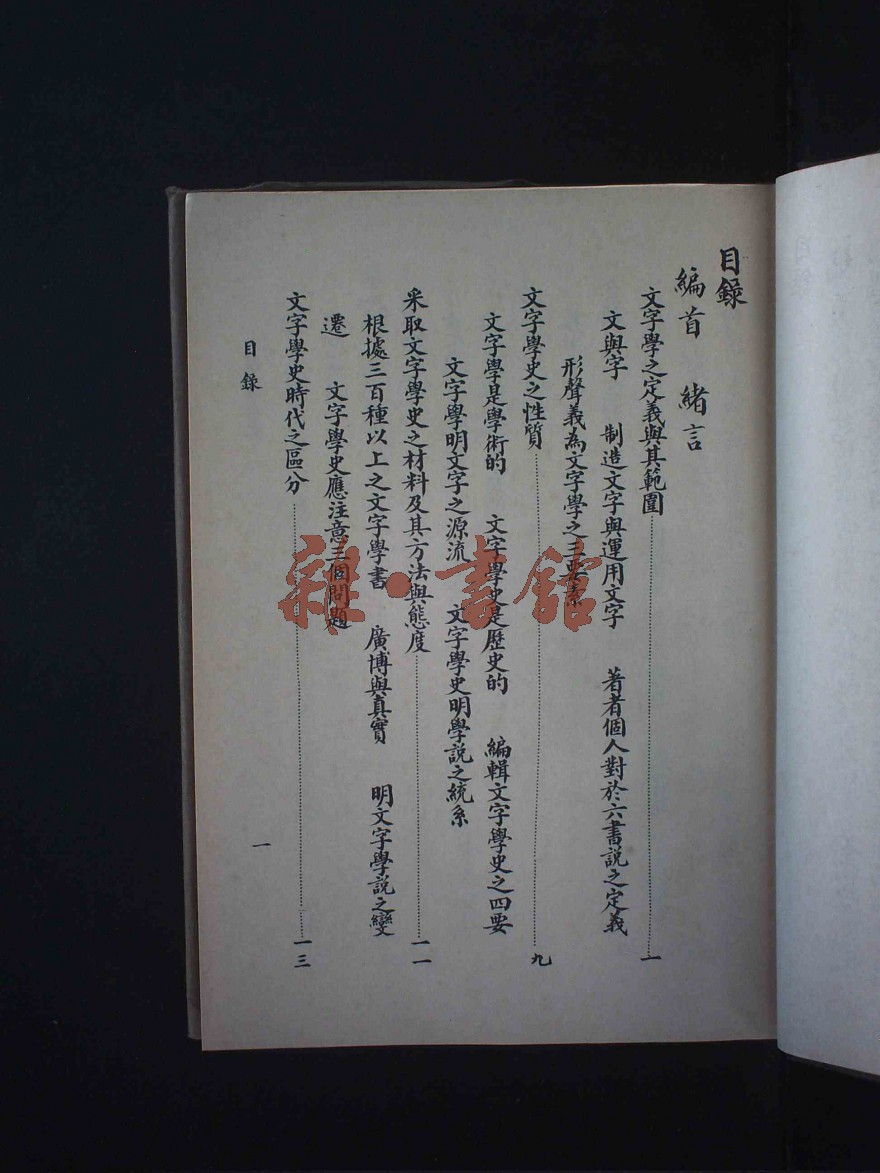 目錄
編首　緒言
文字學之定義與其範圍……一
文與字　制造文字與運用文字　著者個人對於六書說之定義
形聲義為文字學之三要素
文字學史之性質……九
文字學是學術的　文字學史是歷史的　編輯文字學史之四要
文字學明文字之源流　文字學史明學說之統系
采取文字學史之材料及其方法與態度……一一
根據三百種以上之文字學書　廣博與真實　明文字學說之變
遷　文字學史應注意三個問題
文字學史時代之區分……一三
目錄
一
雜·書館